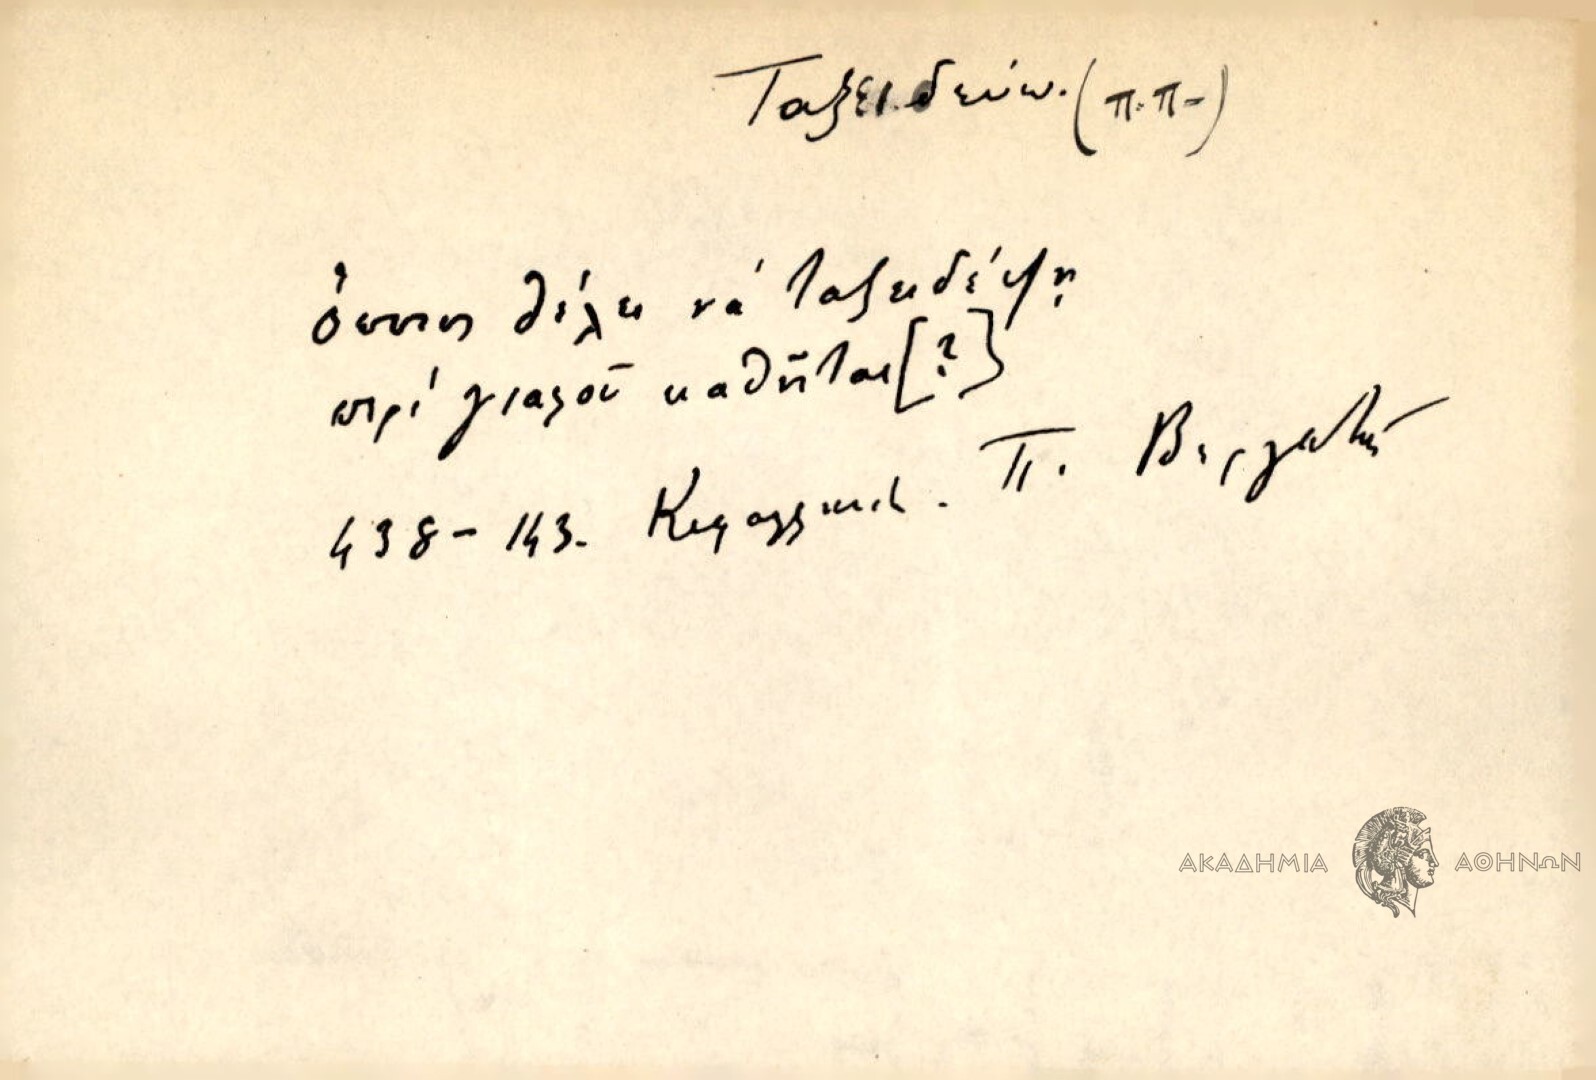 Ταξειδεύω. (π.π-)
όποιος θέλει νά ταξειδέψη
περί γιαλοῦ καθῆται [?]
438 - 143. Κεφαλληνία. Π. Βεργωτής
ΑΚΑΔΗΜΙΑ ΑΘΗΝΩΝ